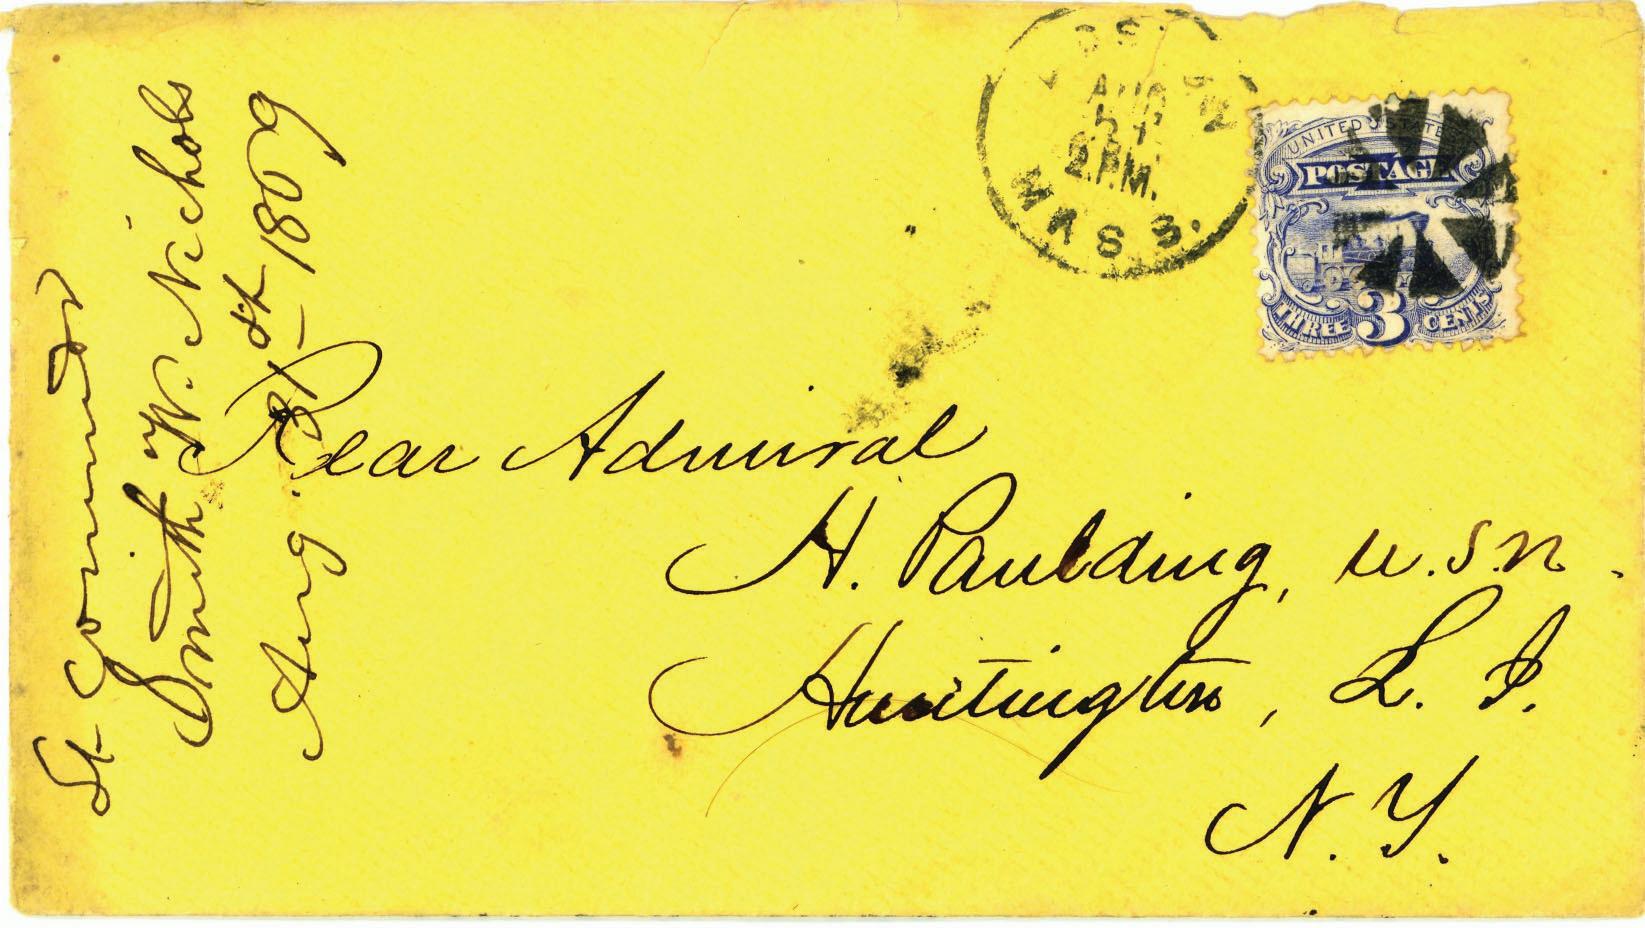 Lt Commdr
Smith W. Nichols
Aug 31st 1869
MASS.
AUG
2.P.M.
UNITED STATES
POSTAGE
THREE 3 CENTS
Rear Admiral
H. Paulding, U.S.N.
Huntington, L. I.
N. Y.